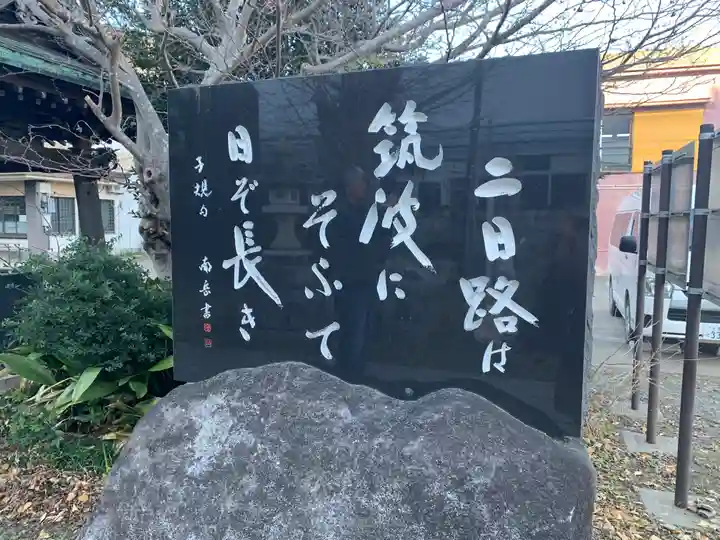 二日路は
筑波に
そふて
日ぞ長き
子規句　南岳書